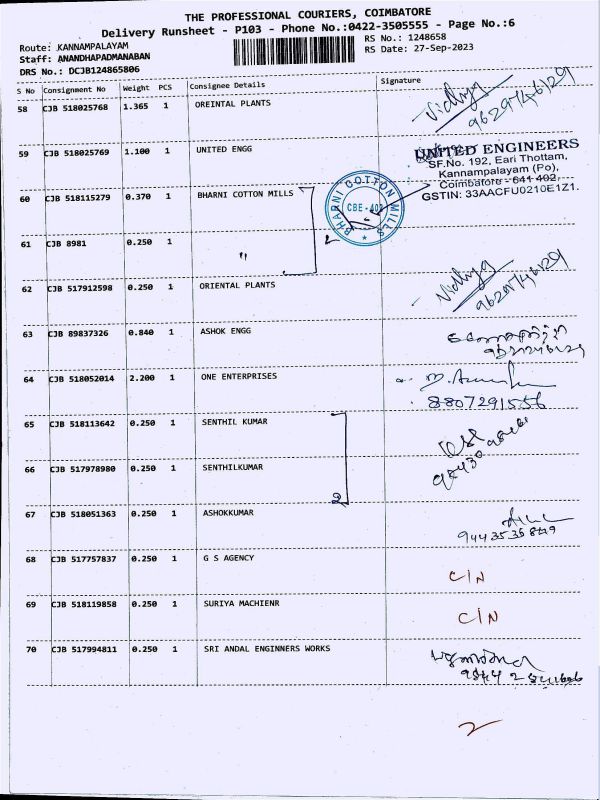 THE PROFESSIONAL COURIERS, COIMBATORE
Delivery Runsheet - P103 - Phone No.:0422-3505555 - Page No.:6
Route: KANNAMPALAYAM
RS No.: 1248658
Staff: ANANDHAPADMANABAN
RS Date: 27-Sep-2023
DRS No.: DCJB124865806
S No Consignment No Weight PCS Consignee Details Signature
58 CJB 518025768 1.365 1 OREINTAL PLANTS Vidhya
9629746129
59 CJB 518025769 1.100 1 UNITED ENGG
UNITED ENGINEERS
SF.No. 192, Eari Thottam,
Kannampalayam (Po),
Coimbatore - 641 402.
GSTIN: 33AACFU0210E1Z1.
60 CJB 518115279 0.370 1 BHARNI COTTON MILLS
BHARNI COTTON MILLS
CBE - 402
61 CJB 8981 0.250 1 " 2
62 CJB 517912598 0.250 1 ORIENTAL PLANTS Vidhya
9629746129
63 CJB 89837326 0.840 1 ASHOK ENGG
64 CJB 518052014 2.200 1 ONE ENTERPRISES
8807291556
65 CJB 518113642 0.250 1 SENTHIL KUMAR
66 CJB 517978980 0.250 1 SENTHILKUMAR
2
67 CJB 518051363 0.250 1 ASHOKKUMAR
68 CJB 517757837 0.250 1 G S AGENCY C/N
69 CJB 518119858 0.250 1 SURIYA MACHIENR C/N
70 CJB 517994811 0.250 1 SRI ANDAL ENGINNERS WORKS
2